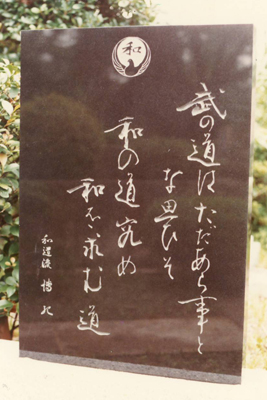 和
武の道はただあら事と
な思ひそ
和の道究め
和を求む道
和道流 博紀